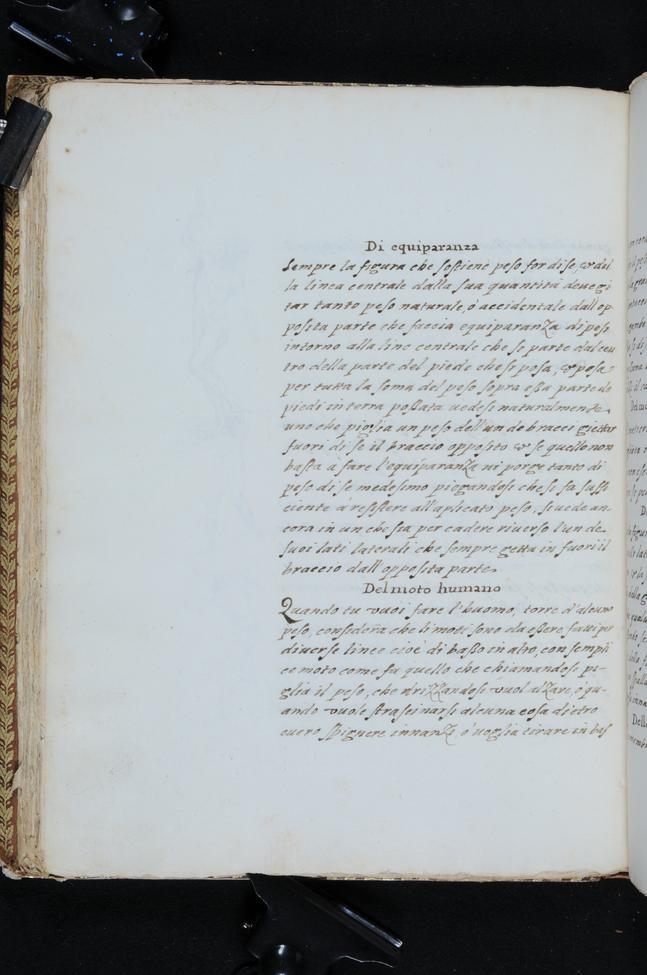 Di equiparanza
Sempre la figura che sostiene peso for di se, & del
la linea centrale dalla sua quantita deue gi
tar tanto peso naturale, ò accidentale dall op
posita parte che faccia equiparanza di pesi
intorno alla line centrale che si parte dal cen
tro della parte del piede che si posa, & posa
per tutta la soma del peso sopra essa parte de
piedi in terra possata uedesi naturalmente
uno che piglia un peso dell'un de bracci gittar
fuori di se il braccio opposito & se quello non
basta à fare l'equiparanza ui porge tanto di
peso di se medesimo piegandosi che si fa suffi
ciente à resistere all'aplicato peso, si uede an
cora in un che sia per cadere riuerso l'un de
suoi lati laterali che sempre getta in fuori il
braccio dall'opposita parte
Del moto humano
Quando tu vuoi fare l'huomo, torre d'alcuno
peso, considera che li moti sono da essere fatti per
diuerse linee cioè di basso in atro, con sempli
ce moto come fa quello che chiamandosi pi-
glia il peso, che rizzandosi vuol alzare, ò qu-
ando vuole strascinarsi alcuna cosa dietro
ouero spignere innanzi, ò uoglia tirare in bas